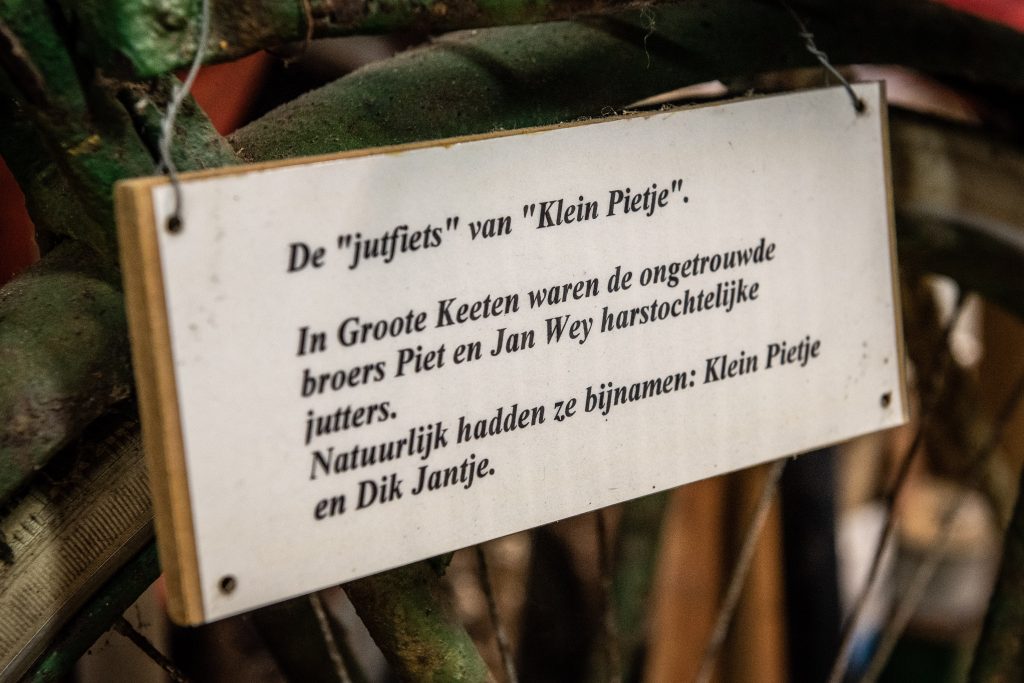 De "jutfiets" van "Klein Pietje".
In Groote Keeten waren de ongetrouwde
broers Piet en Jan Wey harstochtelijke
jutters.
Natuurlijk hadden ze bijnamen: Klein Pietje
en Dik Jantje.